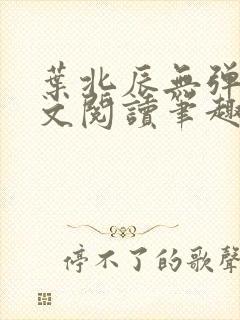 葉北辰無弹
文閱讀筆趣
停不了的歌聲